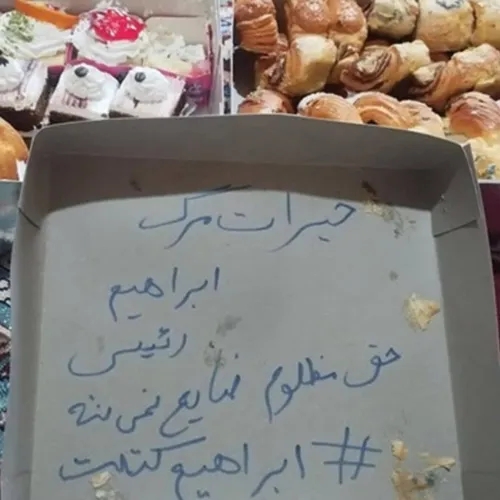 خیرات مرگ
ابراهیم
رئیس
حق مظلوم ضایع نمی شه
# ابراهیم کتلت